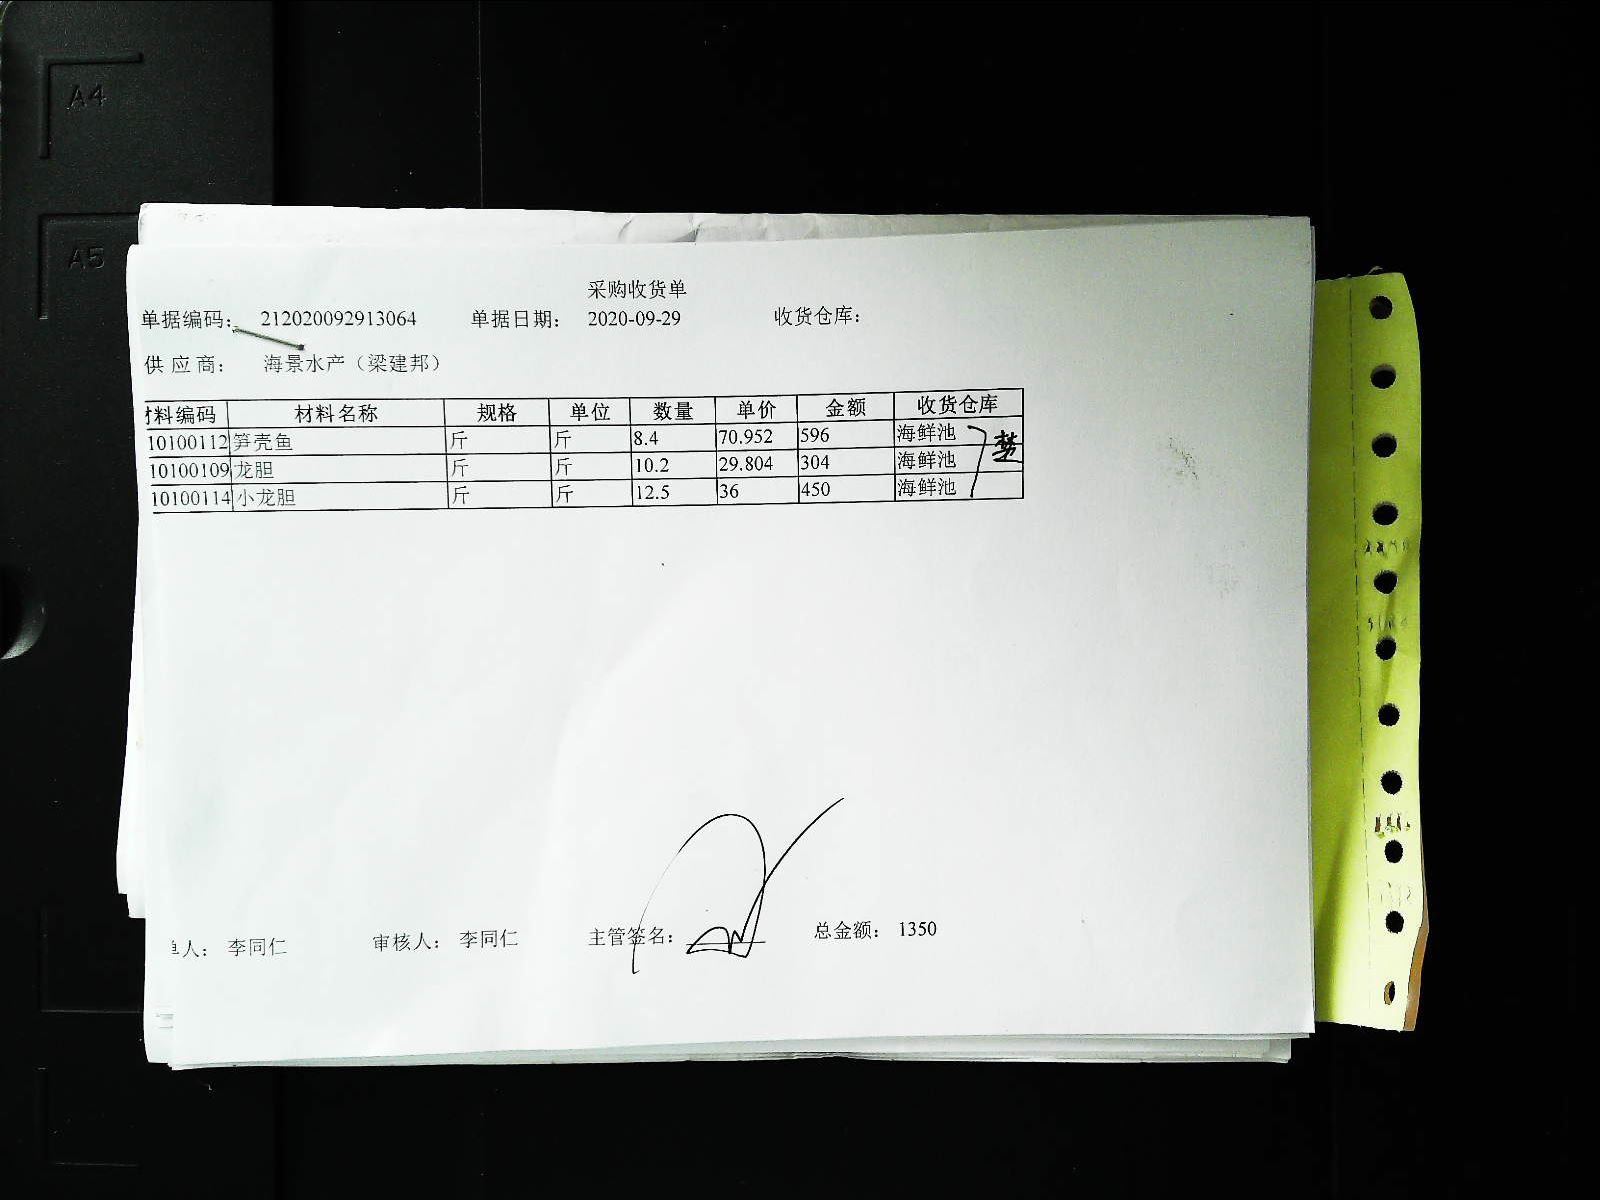 A4
A5
采购收货单
单据编码： 212020092913064 单据日期： 2020-09-29 收货仓库：
供 应 商： 海景水产（梁建邦）
材料编码 材料名称 规格 单位 数量 单价 金额 收货仓库
10100112 笋壳鱼 斤 斤 8.4 70.952 596 海鲜池
10100109 龙胆 斤 斤 10.2 29.804 304 海鲜池
10100114 小龙胆 斤 斤 12.5 36 450 海鲜池
单人： 李同仁 审核人： 李同仁 主管签名： 总金额： 1350